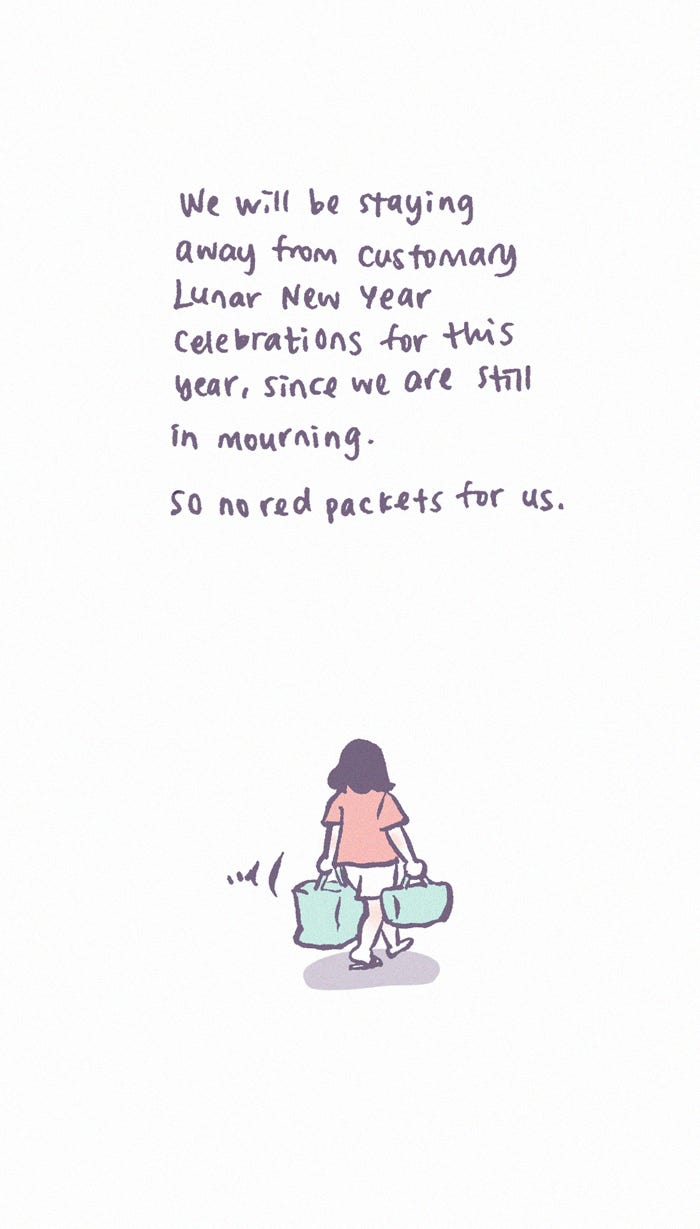 We will be staying
away from customary
Lunar New Year
celebrations for this
year, since we are still
in mourning.
So no red packets for us.